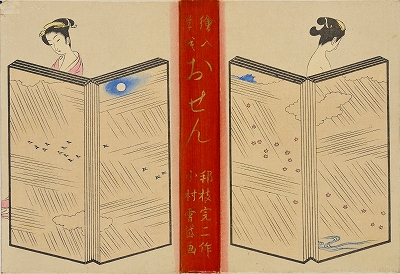 繪入
草帋
おせん
邦枝完二作
小村雪岱画